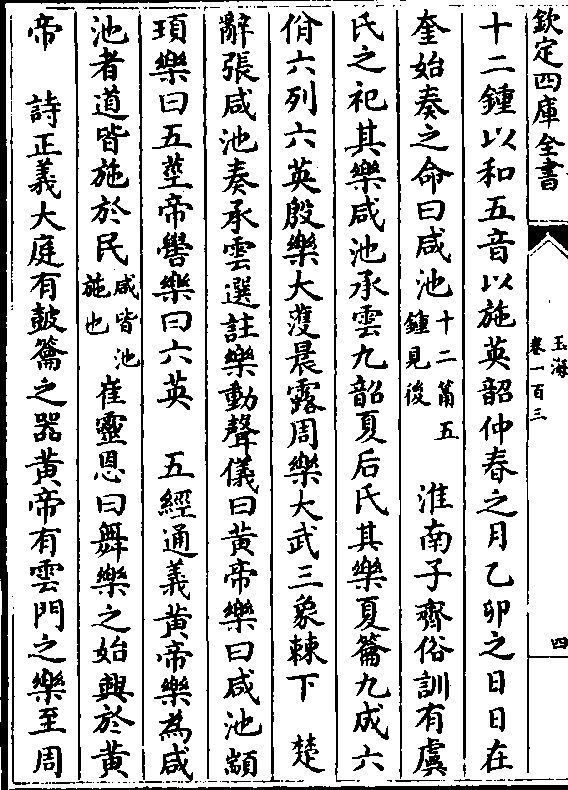 欽定四庫全書
玉海
卷一百三
四
十二鍾以和五音以施英韶仲春之月乙卯之日日在
奎始奏之命曰咸池十二筩五鍾見後 淮南子齊俗訓有虞
氏之祀其樂咸池承雲九韶夏后氏其樂夏籥九成六
佾六列六英殷樂大濩晨露周樂大武三象棘下 楚
辭張咸池奏承雲選註樂動聲儀曰黃帝樂曰咸池顓
頊樂曰五莖帝嚳樂曰六英 五經通義黃帝樂為咸
池者道皆施於民咸皆池施也 崔靈恩曰舞樂之始興於黃
帝 詩正義大庭有鼓籥之器黃帝有雲門之樂至周